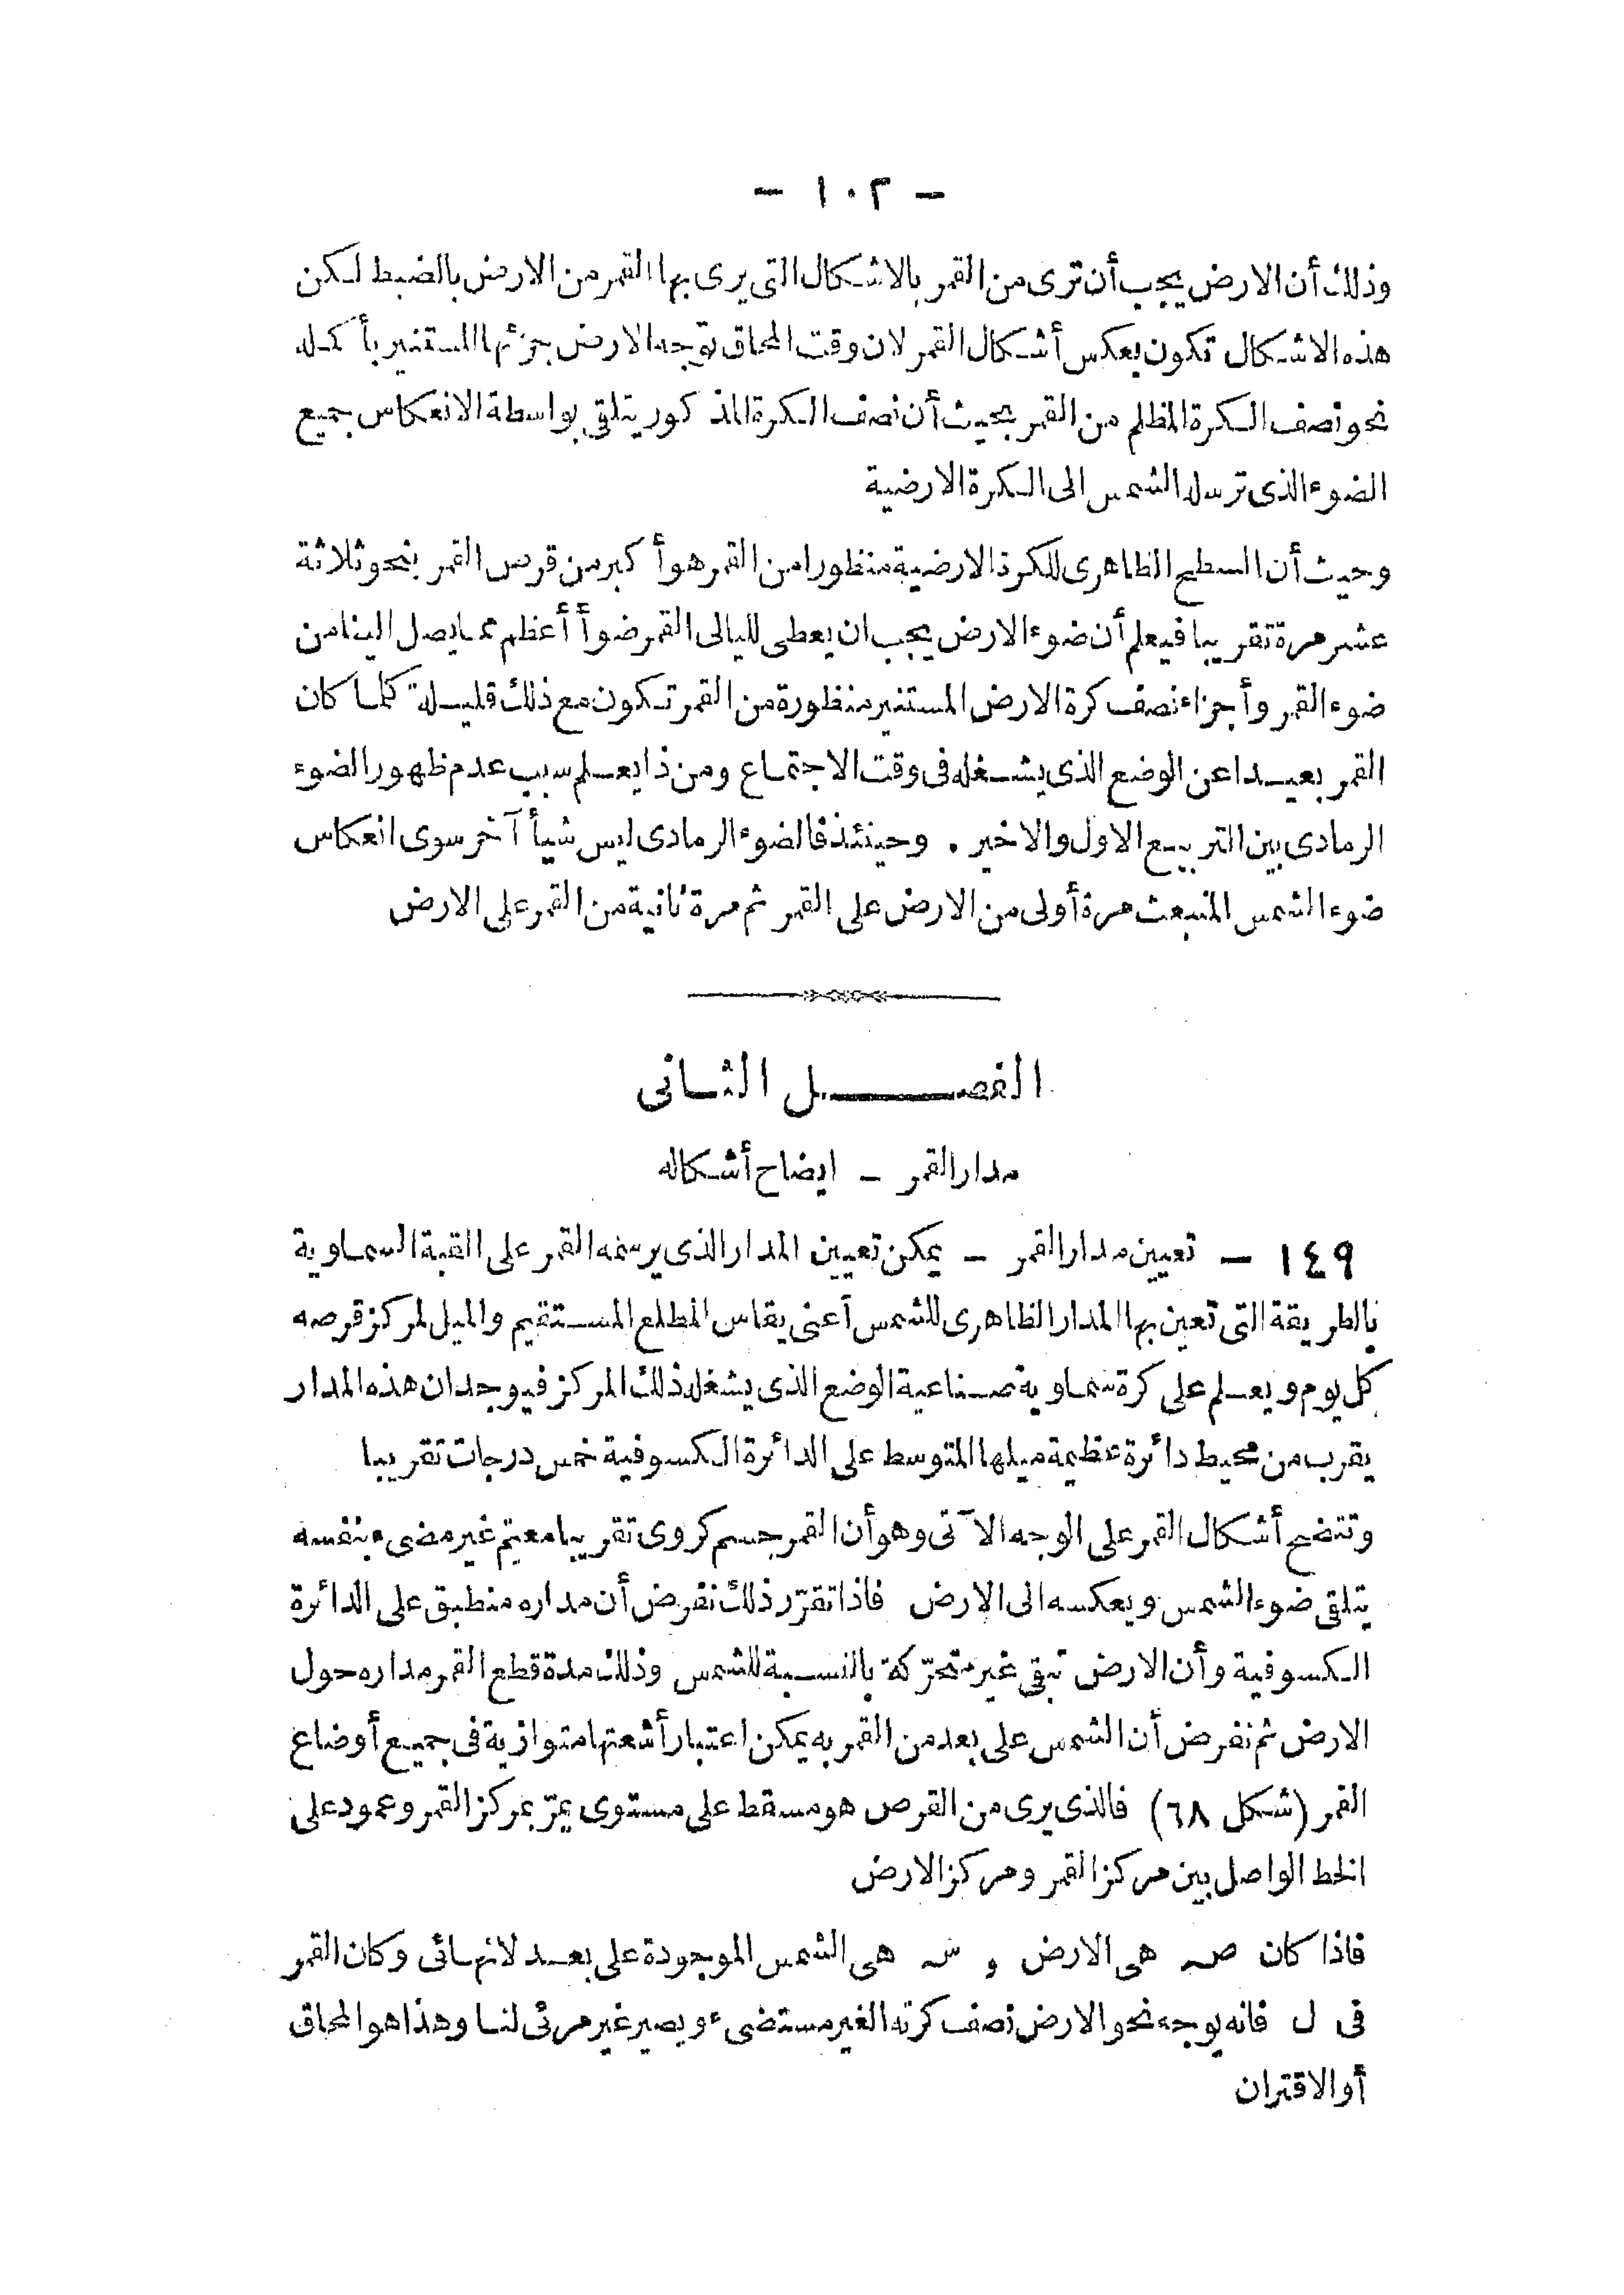 - ١٠٣ -
وذلك أن الارض يجب أن ترى من القمر بالاشكال التى يرى بها القمر من الارض بالضبط لكن
هذه الاشكال تكون بعكس أشكال القمر لان وقت المحاق توجه الارض جزئها المستنير بأكمله
نحو نصف الكرة المظلم من القمر بحيث أن نصف الكرة المذكور يتلقى بواسطة الانعكاس جميع
الضوء الذى ترسله الشمس الى الكرة الارضية
وحيث أن السطح الظاهرى للكرة الارضية منظورا من القمر هو أكبر من قرص القمر بنحو ثلاثة
عشر مرة تقريبا فيعلم أن ضوء الارض يجب ان يعطى لليالى القمر ضوأ أعظم مما يصل الينا من
ضوء القمر وأجزاء نصف كرة الارض المستنير منظورة من القمر تكون مع ذلك قليلة كلما كان
القمر بعيدا عن الوضع الذى يشغله فى وقت الاجتماع ومن ذا يعلم سبب عدم ظهور الضوء
الرمادى بين التربيع الاول والاخير . وحينئذ فالضوء الرمادى ليس شيأ آخر سوى انعكاس
ضوء الشمس المنبعث مرة أولى من الارض على القمر ثم مرة ثانية من القمر على الارض
الفصل الثانى
مدار القمر - ايضاح أشكاله
١٤٩ - تعيين مدار القمر - يمكن تعيين المدار الذى يرسمه القمر على القبة السماوية
بالطريقة التى تعين بها المدار الظاهرى للشمس أعنى يقاس المطلع المستقيم والميل لمركز قرصه
كل يوم ويعلم على كرة سماوية صناعية الوضع الذى يشغله ذلك المركز فيوجد ان هذه المدار
يقرب من محيط دائرة عظيمة ميلها المتوسط على الدائرة الكسوفية خمس درجات تقريبا
وتتضح أشكال القمر على الوجه الآتى وهو أن القمر جسم كروى تقريبا معتم غير مضىء بنفسه
يتلقى ضوء الشمس ويعكسه الى الارض فاذا تقرّر ذلك نفرض أن مداره منطبق على الدائرة
الكسوفية وأن الارض تبقى غير متحرّكة بالنسبة للشمس وذلك مدة قطع القمر مداره حول
الارض ثم نفرض أن الشمس على بعد من القمر به يمكن اعتبار أشعتها متوازية فى جميع أوضاع
القمر (شكل ٦٨) فالذى يرى من القرص هو مسقط على مستوى يمرّ بمركز القمر وعمود على
الخط الواصل بين مركز القمر ومركز الارض
فاذا كان صـ هى الارض و سـ هى الشمس الموجودة على بعد لانهائى وكان القمر
فى ل فانه يوجه نحو الارض نصف كرته الغير مستضىء ويصير غير مرئى لنا وهذا هو المحاق
أو الاقتران